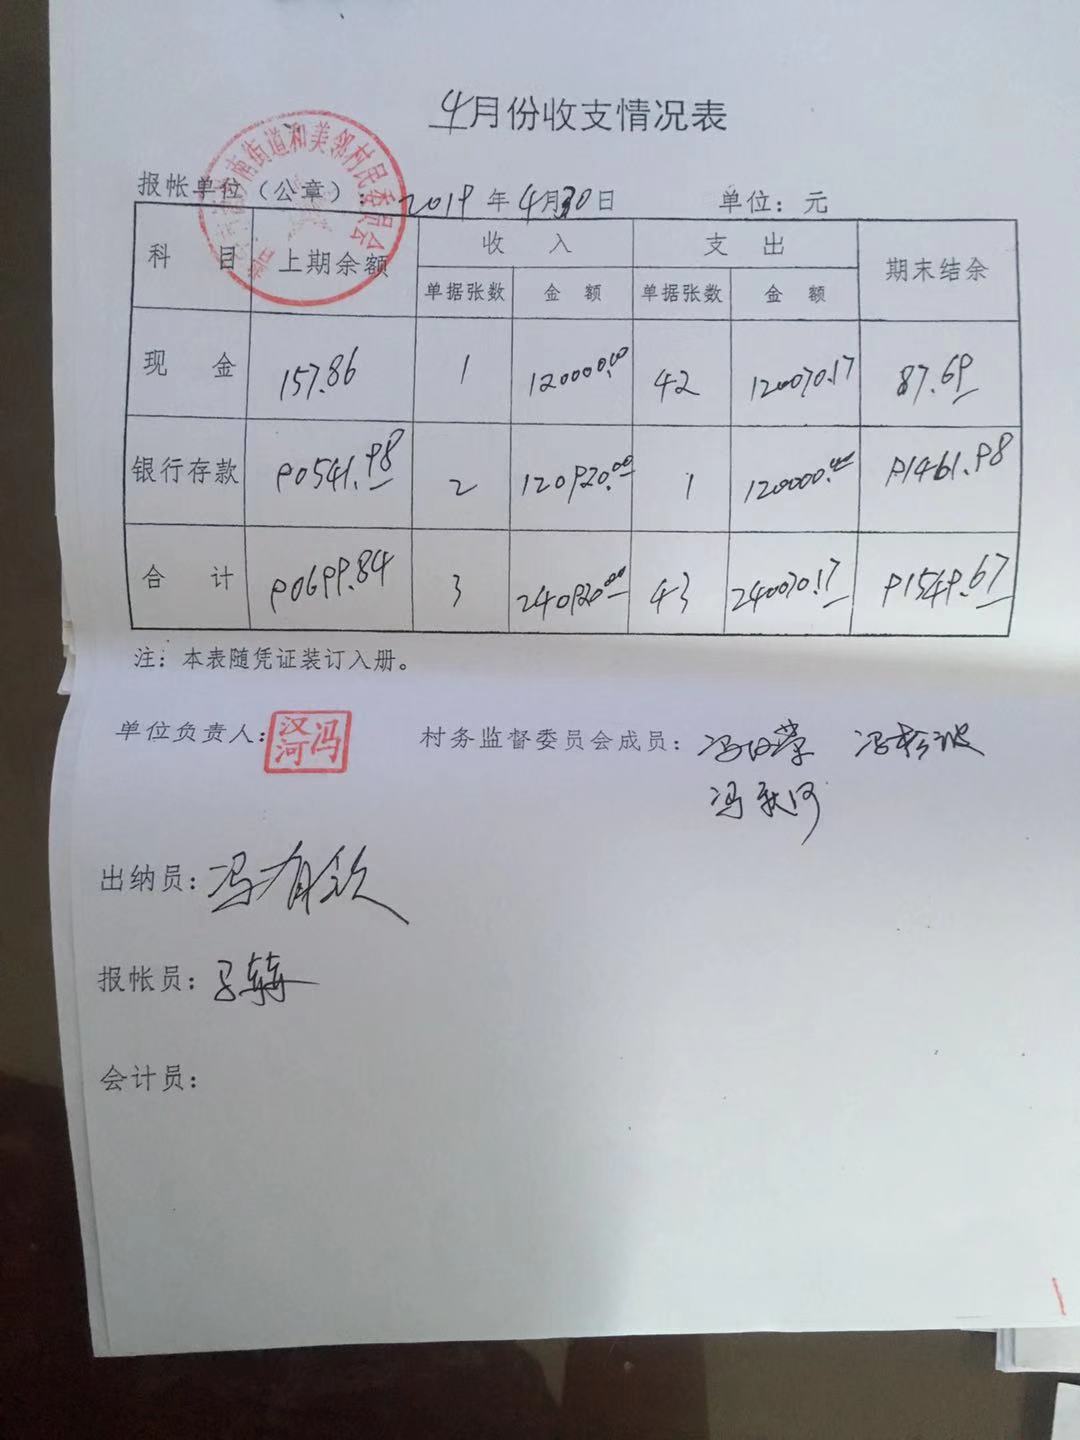 4月份收支情况表
南街道和美邻村民委员会
报帐单位（公章）： 2019年4月30日 单位：元
科目 上期余额 收入 支出 期末结余
单据张数 金额 单据张数 金额
现金 157.86 1 120000.00 42 120070.17 87.69
银行存款 90541.98 2 120920.00 1 120000.00 91461.98
合计 90699.84 3 240920.00 43 240070.17 91549.67
注：本表随凭证装订入册。
单位负责人：冯汉河 村务监督委员会成员：冯 冯
冯
出纳员：冯有钦
报帐员：
会计员：